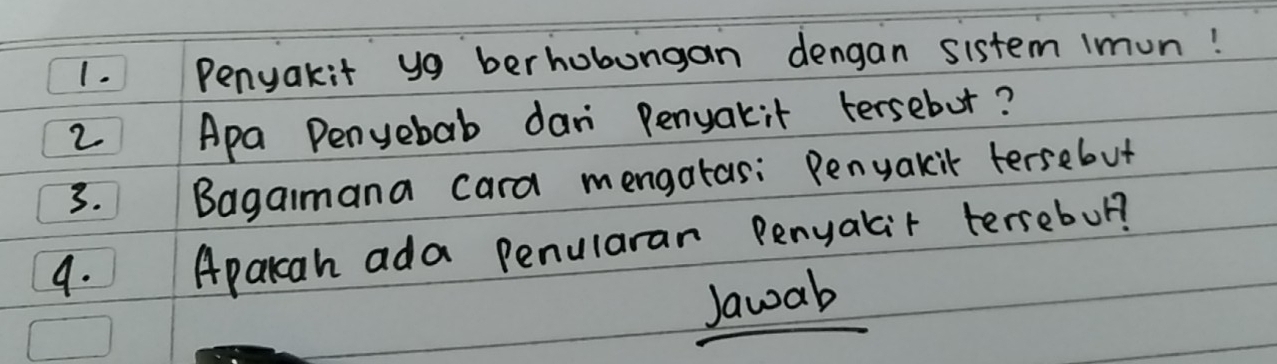 1. Penyakit yg berhubungan dengan sistem imun !
2. Apa Penyebab dari Penyakit tersebut ?
3. Bagaimana cara mengatasi Penyakit tersebut
4. Apakah ada Penularan Penyakit tersebut?
Jawab